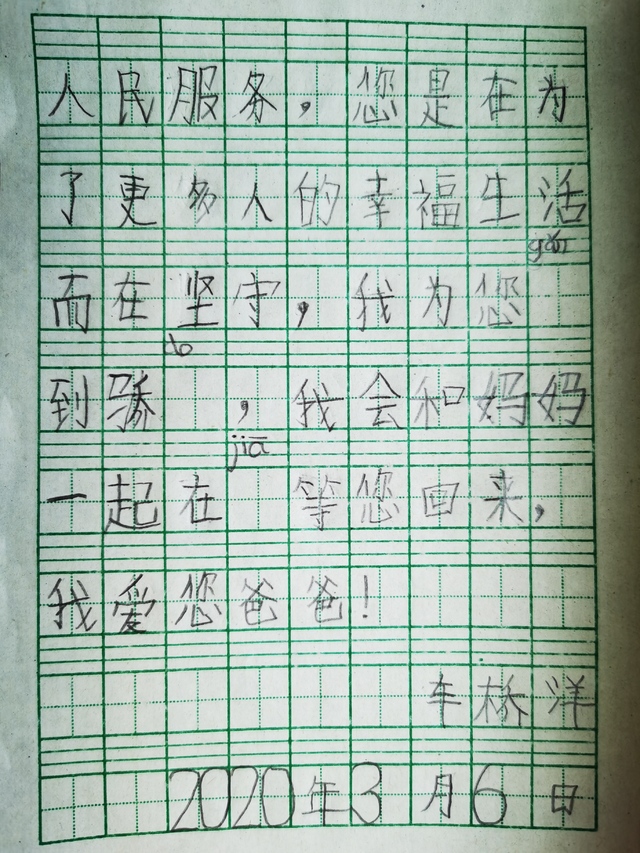 人民服务，您是在为
了更多人的幸福生活
gǎn
而在坚守，我为您
到骄，我会和妈妈
jiā
一起在等您回来，
我爱您爸爸！
车桥洋
2020年3月6日